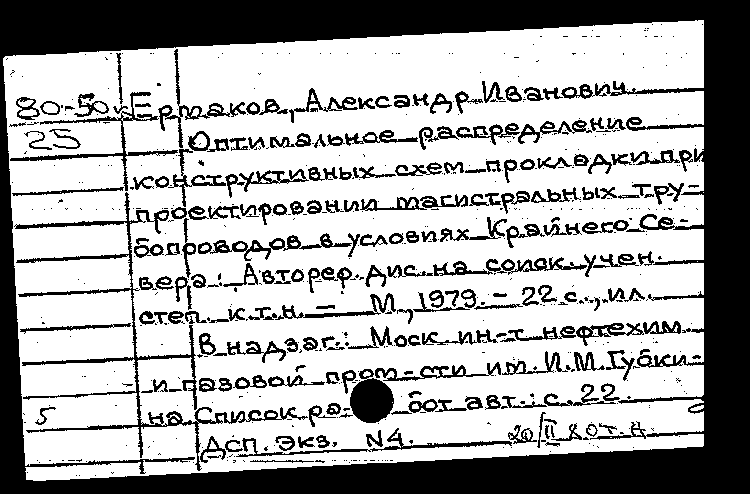 80-50к Ермаков, Александр Иванович.
25 Оптимальное распределение
конструктивных схем прокладки при
проектировании магистральных тру-
бопроводов в условиях Крайнего Се-
вера: Автореф. дис. на соиск. учен.
степ. к.т.н. — М., 1979. – 22 с., ил.
В надзаг.: Моск ин-т нефтехим
и газовой пром-сти им. И.М. Губки-
5 на. Список ра- бот авт.: с. 22.
ДСП. Экз. N4. 20/II 80